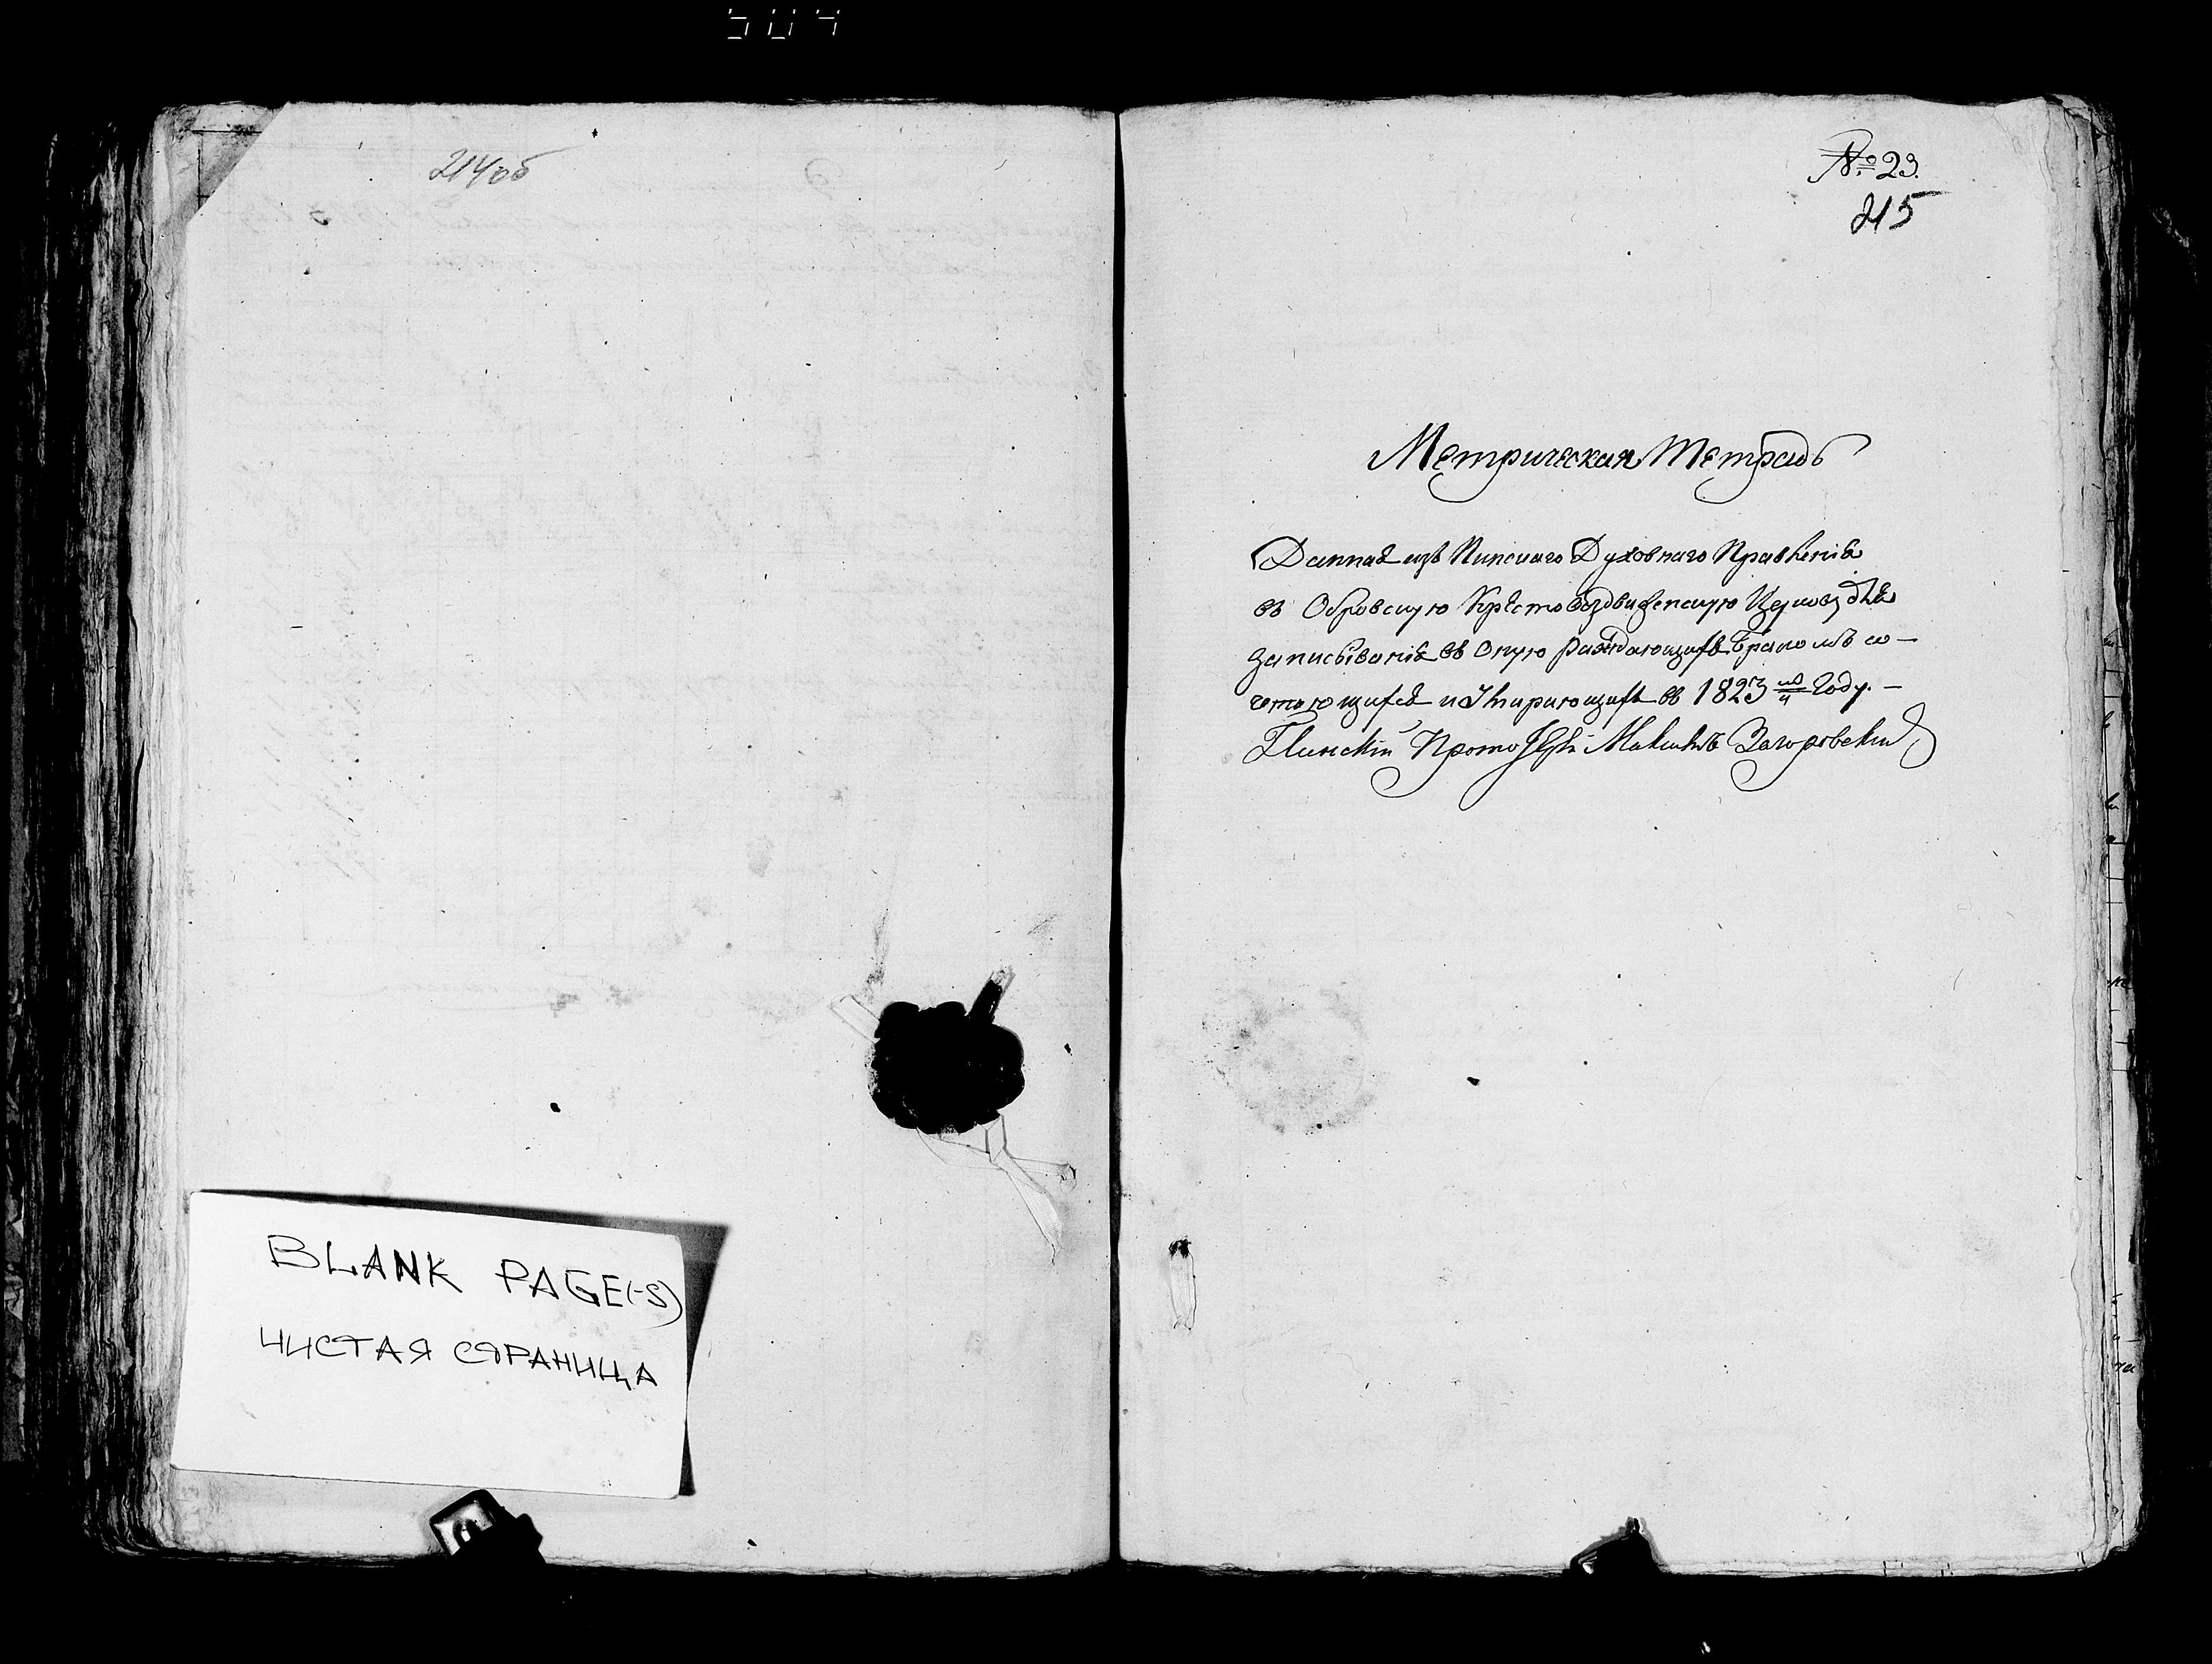 504
214об
BLANK PAGE(-S)
ЧИСТАЯ СТРАНИЦА
№ 23.
215
Метрическая Тетрадь
Данная изъ Пинскаго Духовнаго Правленія
въ Обровскую Крестовоздвиженскую Церковь для
записыванія въ оную раждающихся Бракомъ со-
четающихся и Умирающихъ въ 1823 мъ Году. —
Пинскій Прото Іерей Загоровскій